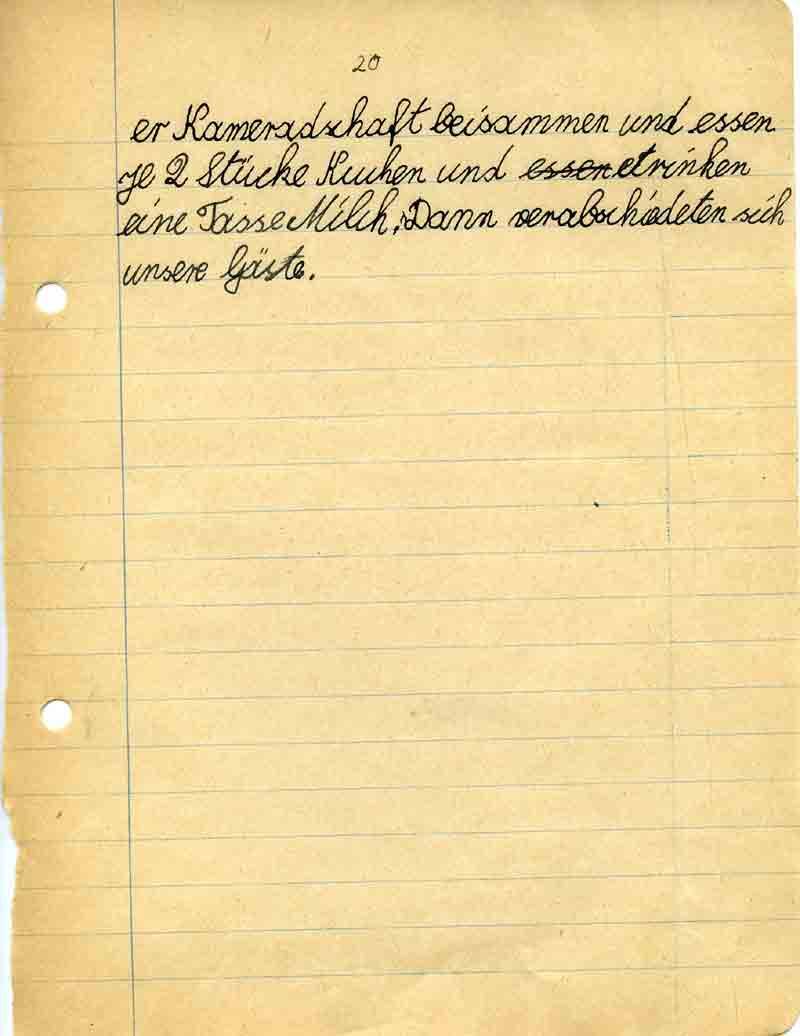 20
er Kameradschaft beisammen und essen
je 2 Stücke Kuchen und essen trinken
eine Tasse Milch. Dann verabschiedeten sich
unsere Gäste.